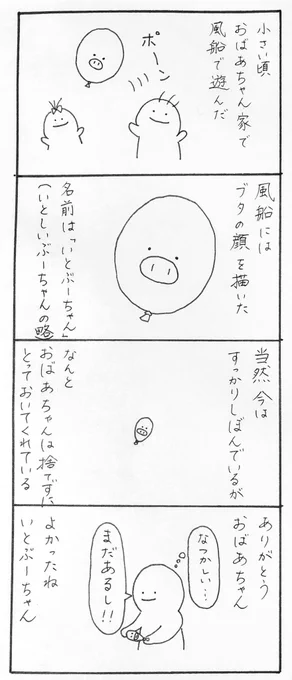 小さい頃
おばあちゃん家で
風船で遊んだ
ポーン
風船には
ブタの顔を描いた
名前は「いとぶーちゃん」
(いとしいぶーちゃんの略)
当然今は
すっかりしぼんでいるが
なんと
おばあちゃんは捨てずに
とっておいてくれている
ありがとう
おばあちゃん
なつかしい…
まだあるし!!
よかったね
いとぶーちゃん